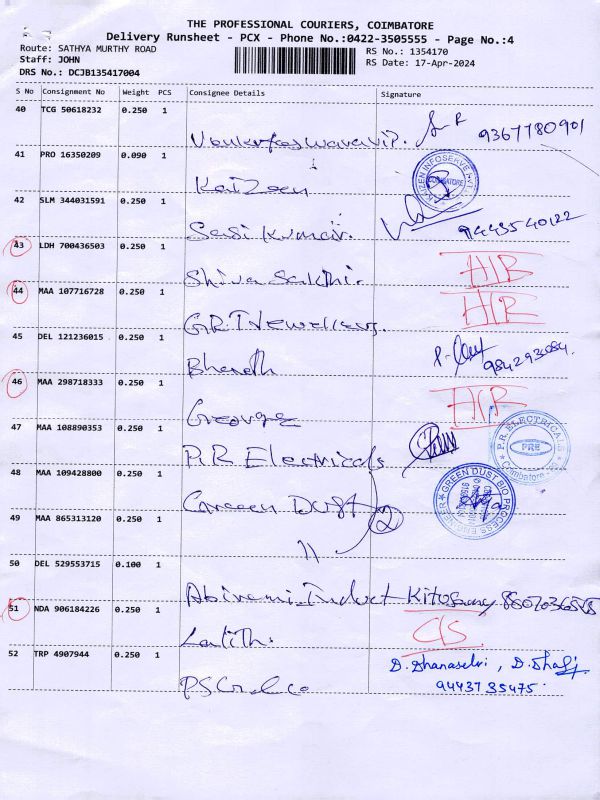 THE PROFESSIONAL COURIERS, COIMBATORE
Delivery Runsheet - PCX - Phone No.:0422-3505555 - Page No.:4
Route: SATHYA MURTHY ROAD
RS No.: 1354170
Staff: JOHN
RS Date: 17-Apr-2024
DRS No.: DCJB135417004
S No Consignment No Weight PCS Consignee Details Signature
40 TCG 50618232 0.250 1
9367780901
41 PRO 16350209 0.090 1
KaiZeen
KAIZEN INFOSERVE PVT. COIMBATORE
42 SLM 344031591 0.250 1
Sasi Kumar.
9443540122
43 LDH 700436503 0.250 1
Shiva Sakthi.
44 MAA 107716728 0.250 1
G.R.T Jewellers.
45 DEL 121236015 0.250 1
Bharath
984293084.
46 MAA 298718333 0.250 1
George
47 MAA 108890353 0.250 1
P.R Electricals
P.R. ELECTRICALS PRE Coimbatore
48 MAA 109428800 0.250 1
Green Dust 2
GREEN DUST BIO PROCESS ENGINEER
49 MAA 865313120 0.250 1
11
50 DEL 529553715 0.100 1
Abirami Induct
51 NDA 906184226 0.250 1
Lalith.
C/S
52 TRP 4907944 0.250 1
D. Dhanaselvi, D. Dhalj
9443735475